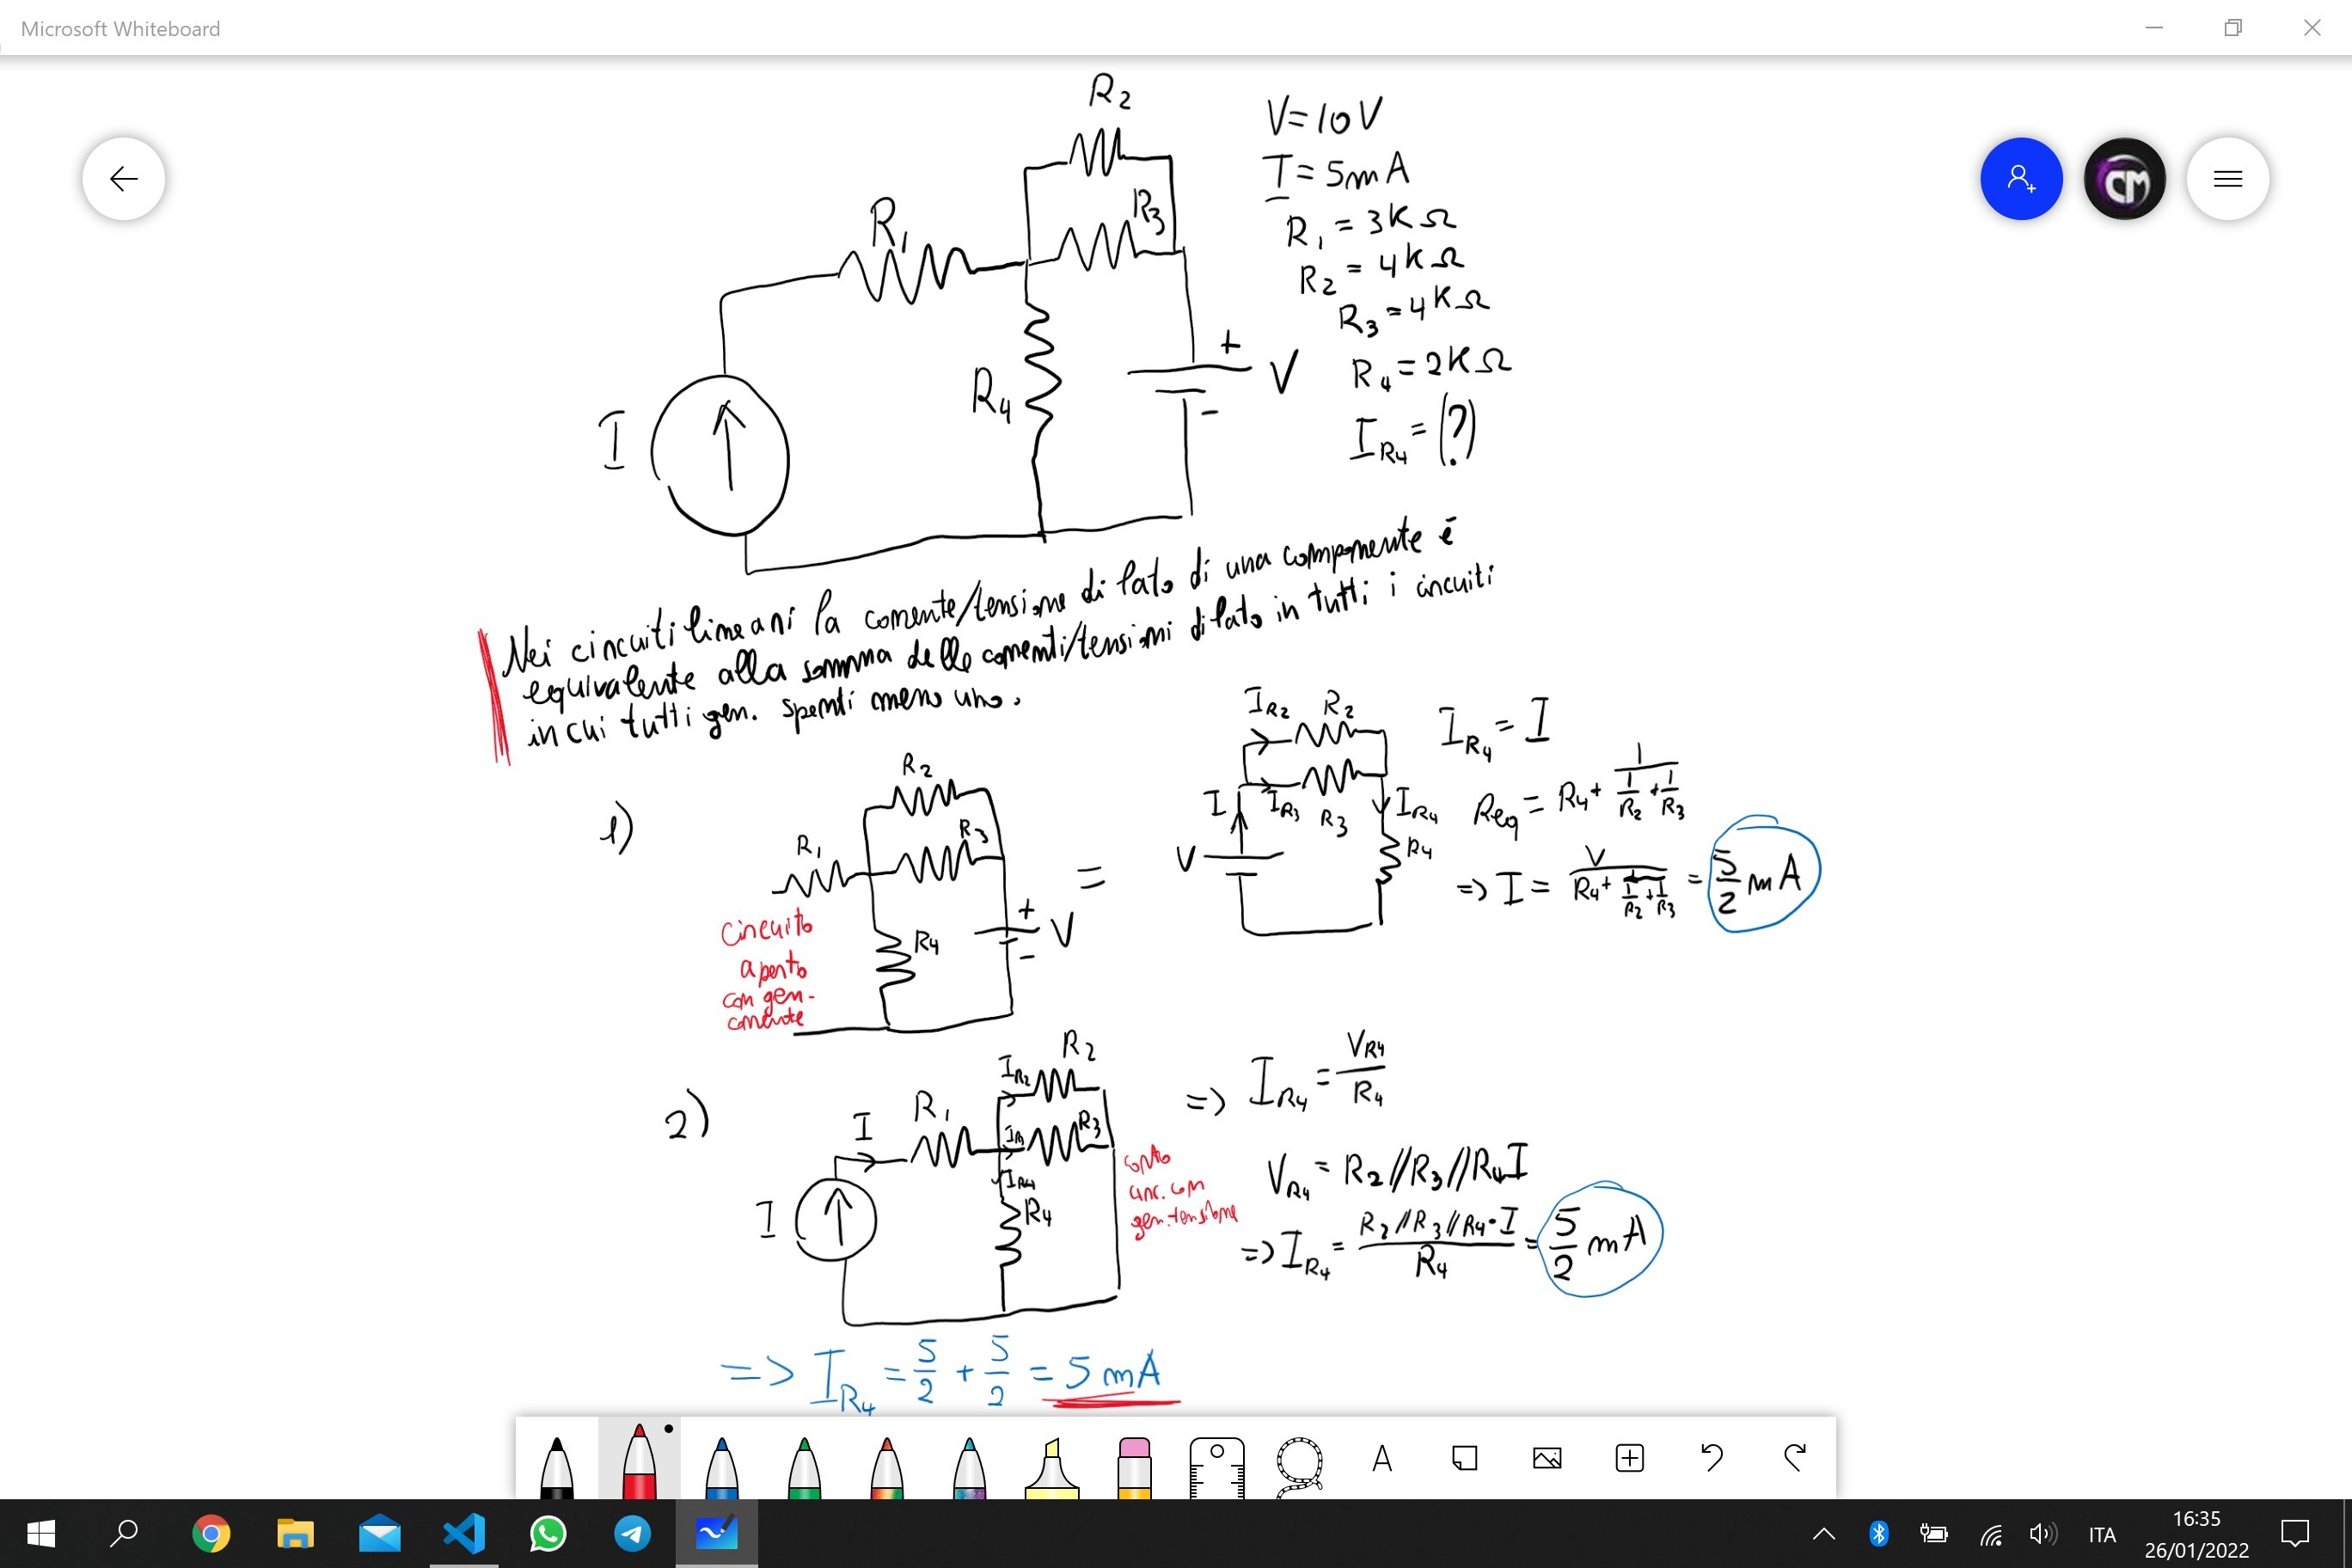 Microsoft Whiteboard
R2
V=10V
I=5mA
R1=3KΩ
R2=4KΩ
R3=4KΩ
R4=2KΩ
IR4=(?)
R1
R3
R4
I
+
V
-
Nei circuiti lineari la corrente/tensione di lato di una componente è
equivalente alla somma delle correnti/tensioni di lato in tutti i circuiti
in cui tutti gen. spenti meno uno.
1)
R2
R1
R3
R4
+
V
-
Circuito
aperto
con gen.
corrente
=
IR2 R2
I IR3 R3 IR4
V R4
IR4=I
Req=R4+1/(1/R2+1/R3)
=>I=V/(R4+1/(1/R2+1/R3))=5/2 mA
2)
IR2 R2
I R1 IR3 R3
IR4
I R4
corto
circ. con
gen. tensione
=>IR4=VR4/R4
VR4=R2//R3//R4I
=>IR4=R2//R3//R4·I/R4=5/2 mA
=>IR4=5/2+5/2=5mA
A
ITA
16:35
26/01/2022
CM